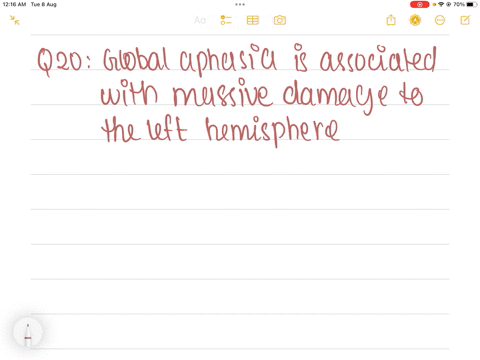 12:16 AM Tue 8 Aug
70%
Aa
Q20: Global aphasia is associated
with massive damage to
the left hemisphere